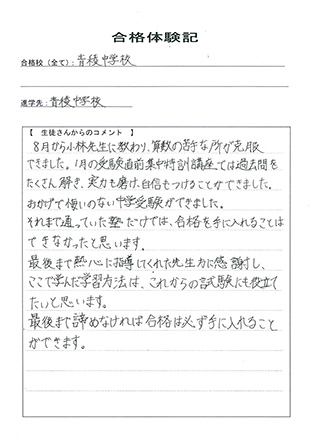 合格体験記
合格校（全て）：青稜中学校
進学先：青稜中学校
【 生徒さんからのコメント 】
8月から小林先生に教わり、算数の苦手な所が克服
できました。1月の受験直前集中特訓講座では過去問を
たくさん解き、実力も磨け、自信もつけることができました。
おかげで悔いのない中学受験ができました。
それまで通っていた塾だけでは、合格を手に入れることは
できなかったと思います。
最後まで熱心に指導してくれた先生方に感謝し、
ここで学んだ学習方法は、これからの試験にも役立て
たいと思います。
最後まで諦めなければ合格は必ず手に入れること
ができます。